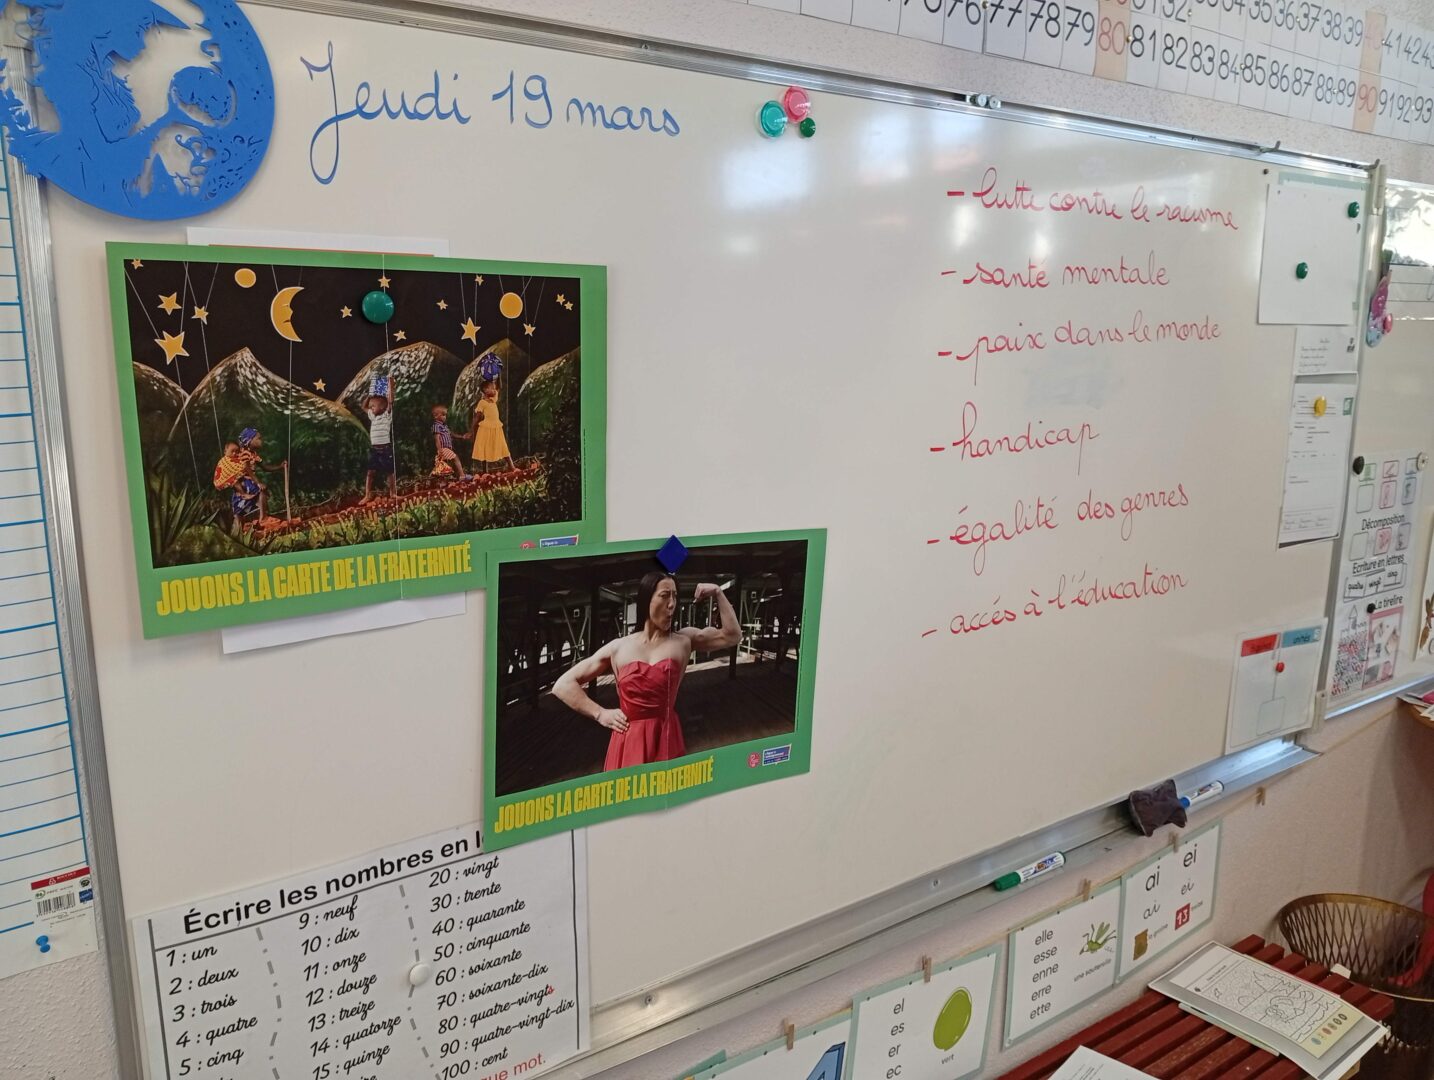 Jeudi 19 mars
- lutte contre le racisme
- santé mentale
- paix dans le monde
- handicap
- égalité des genres
- accés à l'éducation
JOUONS LA CARTE DE LA FRATERNITÉ
JOUONS LA CARTE DE LA FRATERNITÉ
Écrire les nombres en
1 : un
2 : deux
3 : trois
4 : quatre
5 : cinq
9 : neuf
10 : dix
11 : onze
12 : douze
13 : treize
14 : quatorze
15 : quinze
20 : vingt
30 : trente
40 : quarante
50 : cinquante
60 : soixante
70 : soixante-dix
80 : quatre-vingts
90 : quatre-vingt-dix
100 : cent
mot.
76 77 78 79 80 81 82 83 84 85 86 87 88 89 90 91 92 93
Décomposition
Ecriture en lettres
La tirelire
unités
el
es
er
ec
vert
elle
esse
enne
erre
ette
ai
ei
ai
ei
13